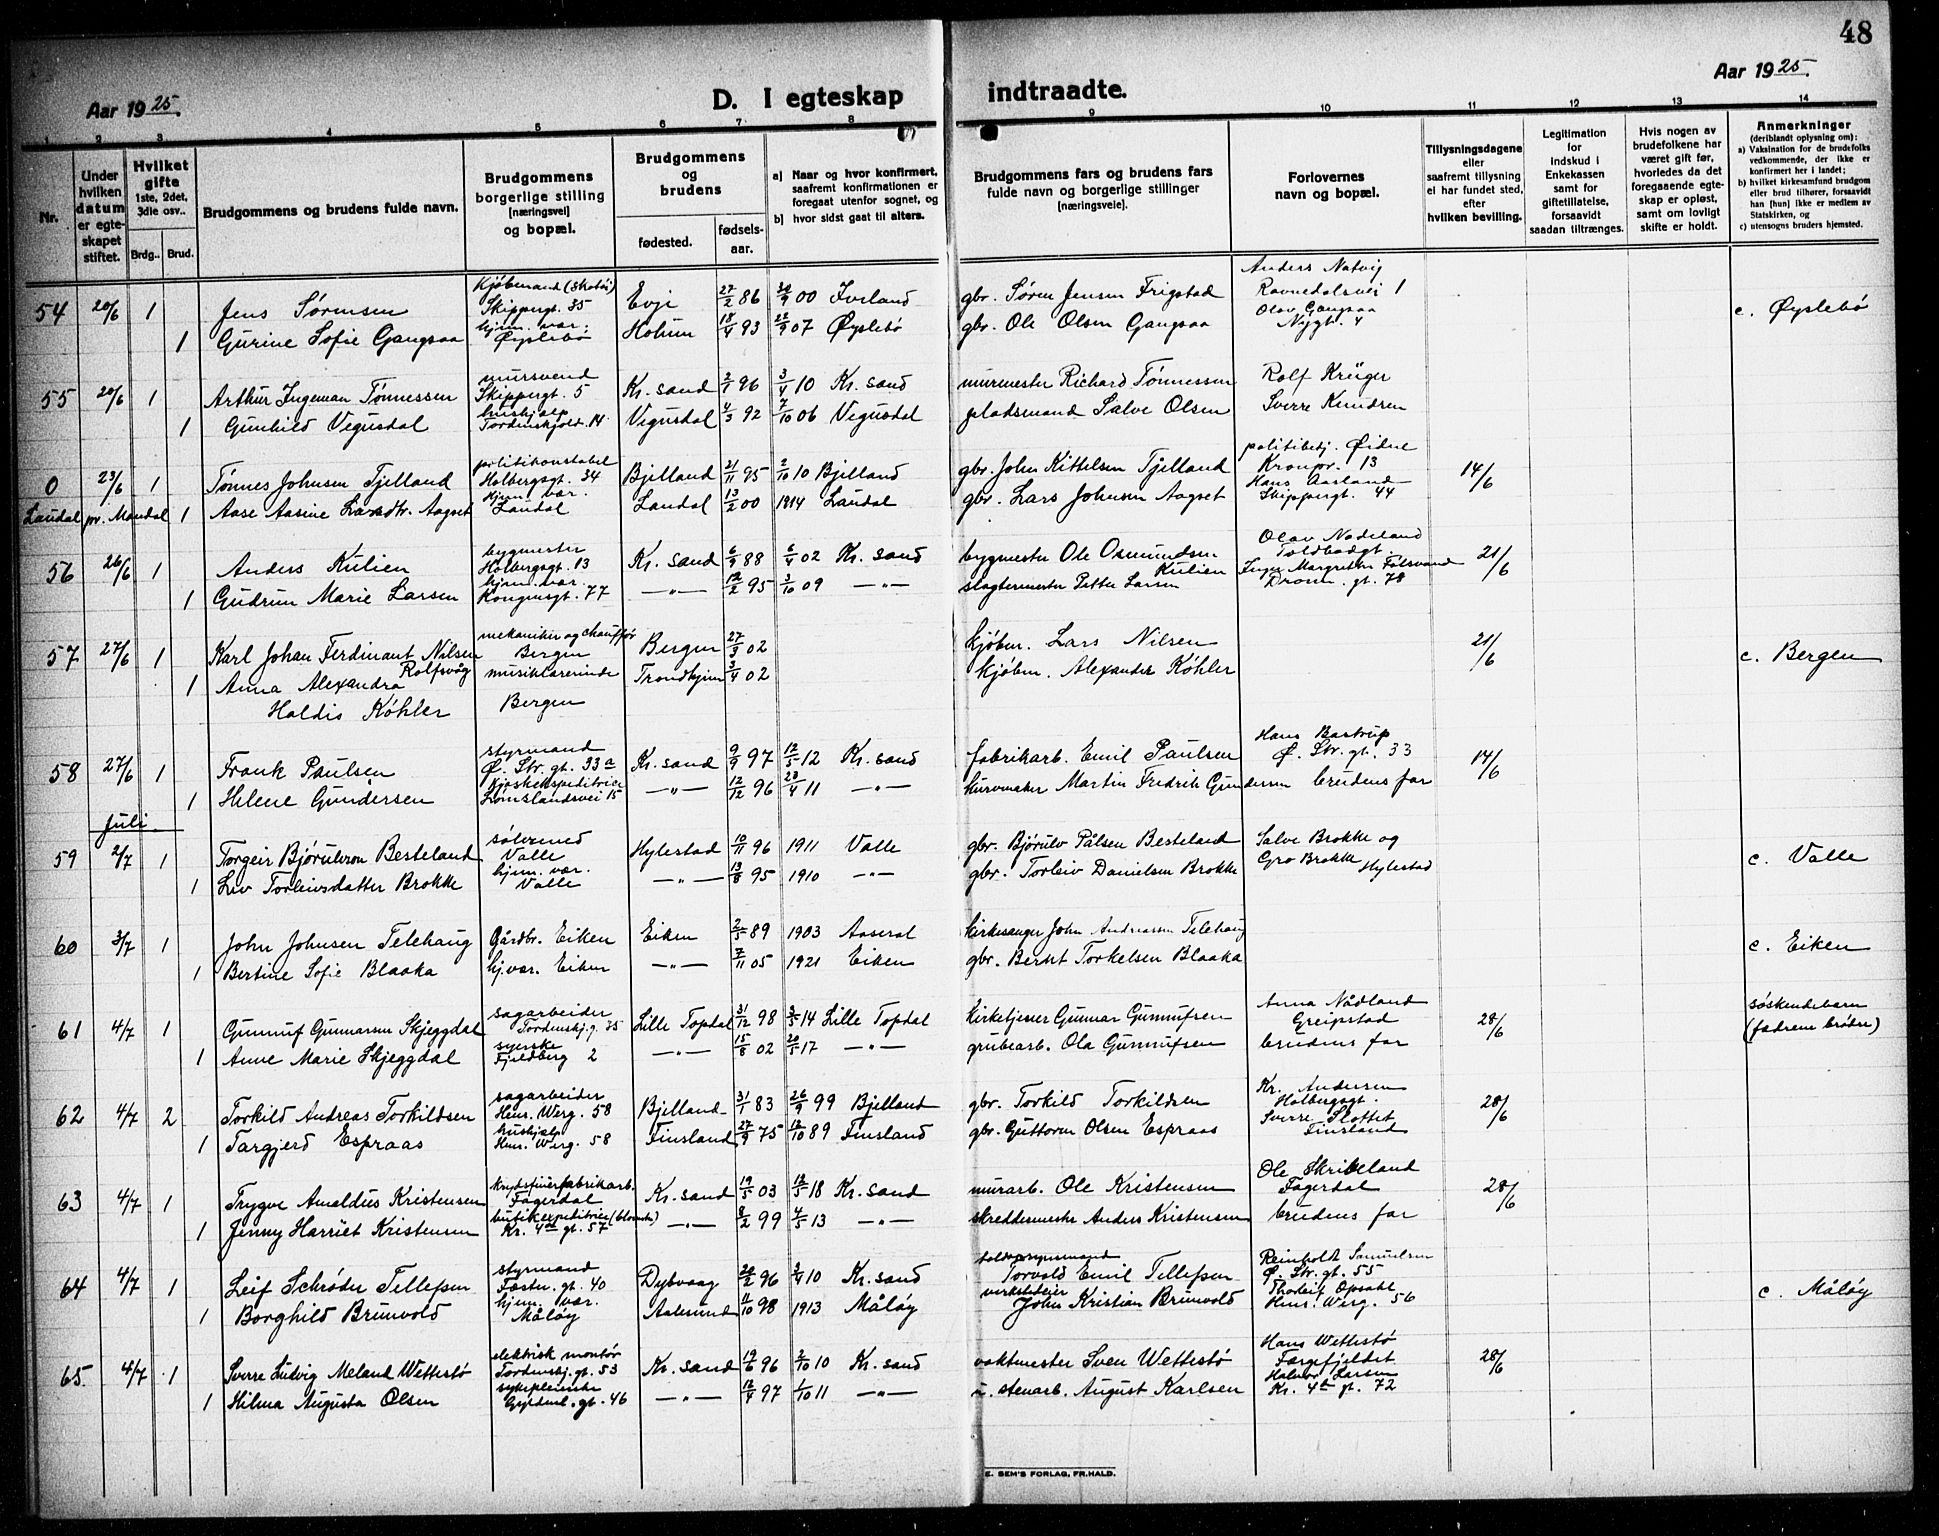 48
Aar 1925. D. I egteskap indtraadte. Aar 1925.
1 2 3 4 5 6 7 8 9 10 11 12 13 14
Nr.
Under hvilken datum er egteskapet stiftet.
Hvilket gifte 1ste, 2det, 3die osv..
Brdg.. Brud.
Brudgommens og brudens fulde navn.
Brudgommens borgerlige stilling [næringsvei] og bopæl.
Brudgommens og brudens
fødested. fødselsaar.
a) Naar og hvor konfirmert, saafremt konfirmationen er foregaat utenfor sognet, og
b) hvor sidst gaat til alters.
Brudgommens fars og brudens fars fulde navn og borgerlige stillinger [næringsveie].
Forlovernes navn og bopæl.
Tillysningsdagene eller saafremt tillysning ei har fundet sted, efter hvilken bevilling.
Legitimation for indskud i Enkekassen samt for giftetillatelse, forsaavidt saadan tiltrænges.
Hvis nogen av brudefolkene har været gift før, hvorledes da det foregaaende egteskap er opløst, samt om lovligt skifte er holdt.
Anmerkninger (deriblandt oplysning om): a) Vaksination for de brudefolks vedkommende, der ikke er konfirmert her i landet; b) hvilket kirkesamfund brudgom eller brud tilhører, forsaavidt han (hun) ikke er medlem av Statskirken, og c) utensogns bruders hjemsted.
54 20/6 1 Jens Sørensen Kjøbmand (Skotøi) Skippergt. 35 Evje 27/2 86 00 Iveland gbr. Søren Jensen Frigstad Anders Natvig Ravnedalsvei 1
1 Gurine Sofie Gangsaa hjem. vær: Øyslebø Holum 18/4 93 07 Øyslebø gbr. Ole Olsen Gangsaa Olav Gangsaa Nygt. 4 c. Øyslebø
55 20/6 1 Arthur Ingeman Tønnessen mursvend Skippergt. 5 Kr. sand 2/1 96 3/4 10 Kr. sand murmester Richard Tønnessen Rolf Krüger
1 Gunhild Vegusdal hushjelp Tordenskjold. 14 Vegusdal 4/3 92 7/10 06 Vegusdal pladsmand Salve Olsen Sverre Knudsen
0 23/6 1 Tønnes Johnsen Tjelland politikonstabel Holbergsgt. 34 Bjelland 21/11 95 2/10 10 Bjelland gbr. John Kittelsen Tjelland politibetj. Øidne Kronpr. 13 14/6
Laudal pr. Mandal 1 Aase Aasine Larsdtr. Aagset hjem. vær. Laudal Laudal 13/2 00 1914 Laudal gbr. Lars Johnsen Aagset Hans Aasland Skippergt. 44
56 26/6 1 Anders Kulien bygmester Holbergsgt. 13 Kr. sand 6/9 88 6/4 02 Kr. sand bygmester Ole Osmundsen Kulien Olav Nodeland Toldbodgt. 21/6
1 Gudrun Marie Larsen hjem. vær. Kongensgt. 77 —"— 12/2 95 3/10 09 —"— slagtermester Petter Larsen Inger Margrethe Dronn. gt. 78
57 27/6 1 Karl Johan Ferdinant Nilsen Rolfsvåg mekaniker og chauffør Bergen Bergen 27/3 02 kjøbm. Lars Nilsen 21/6 c. Bergen
1 Anna Alexandra Haldis Køhler musiklærerinde Bergen Trondhjem 3/4 02 kjøbm. Alexander Køhler
58 27/6 1 Frank Paulsen styrmand Ø. Str. gt. 33a Kr. sand 9/9 97 12/5 12 Kr. sand fabrikarb. Emil Paulsen Hans Bastrup Ø. Str. gt. 33 14/6
1 Helene Gundersen Kioskekspeditrice Lømslandsvei 15 —"— 12/12 96 23/4 11 —"— kurvmaker Martin Fredrik Gundersen brudens far
Juli
59 2/7 1 Torgeir Bjørulvson Besteland sølvsmed Valle Hylestad 10/11 96 1911 Valle gbr. Bjørulv Pålsen Besteland Salve Brokke og c. Valle
1 Liv Torleivsdatter Brokke hjem. vær. Valle —"— 13/8 95 1910 —"— gbr. Torleiv Danielsen Brokke Gro Brokke Hylestad
60 3/7 1 John Johnsen Telehaug Gårdbr. Eiken Eiken 2/5 89 1903 Aaseral kirkesanger John Andreassen Telehaug c. Eiken
1 Bertine Sofie Blaaka hj. vær. Eiken —"— 7/11 05 1921 Eiken gbr. Bernt Torkelsen Blaaka
61 4/7 1 Gunnuf Gunnarsen Skjeggdal sagarbeider Tordenskj. g. 35 Lille Topdal 31/12 98 3/5 14 Lille Topdal kirketjener Gunnar Gunnufsen Anna Nådland Greipstad 28/6 søskendebarn
1 Anne Marie Skjeggdal syerske Fjeldberg 2 —"— 15/8 02 20/5 17 —"— grubearb. Ola Gunnufsen brudens far (fædrene brødre)
62 4/7 2 Torkild Andreas Torkildsen sagarbeider Hens. Werg. 58 Bjelland 31/1 83 26/9 99 Bjelland gbr. Torkild Torkildsen Kr. Andersen Holbergsgt. 28/6
1 Targjerd Espraas hushjelp Hens. Werg. 58 Finsland 27/9 75 12/10 89 Finsland gbr. Guttorm Olsen Espraas Sverre Slottet Finsland
63 4/7 1 Trygve Arnaldus Kristensen krydsfinerfabrikarb. Fagerdal Kr. sand 19/5 03 12/5 18 Kr. sand murarb. Ole Kristensen Ole Skribeland Fagerdal 28/6
1 Jenny Harriet Kristensen butikexpeditrice (blomster) Kr. 4de gt. 57 —"— 8/2 99 4/5 13 —"— skreddermester Anders Kristensen brudens far
64 4/7 1 Leif Schrøder Tellefsen styrmand Festn. gt. 40 Dybvaag 20/2 96 3/4 10 Kr. sand toldopsynsmand Torvald Emil Tellefsen Reinholdt Samuelsen Ø. Str. gt. 55
1 Borghild Brunvold hjem. vær. Måløy Aalesund 11/10 98 1913 Måløy verkstedeier John Kristian Brunvold Thorleif Opsahl Hens. Werg. 56 c. Måløy
65. 4/7 1 Sverre Ludvig Meland Wettestø elektrisk montør Tordenskj. gt. 53 Kr. sand 19/6 96 2/10 10 Kr. sand vaktmester Sven Wettestø Hans Wettestø Færgefjeldet 28/6
1 Hilma Augusta Olsen sykepleierske Gyldenl. gt. 46 —"— 12/4 97 1/10 11 —"— stenarb. August Karlsen Halvor Larsen Kr. 4de gt. 72
E. SEM'S FORLAG, FR.HALD.